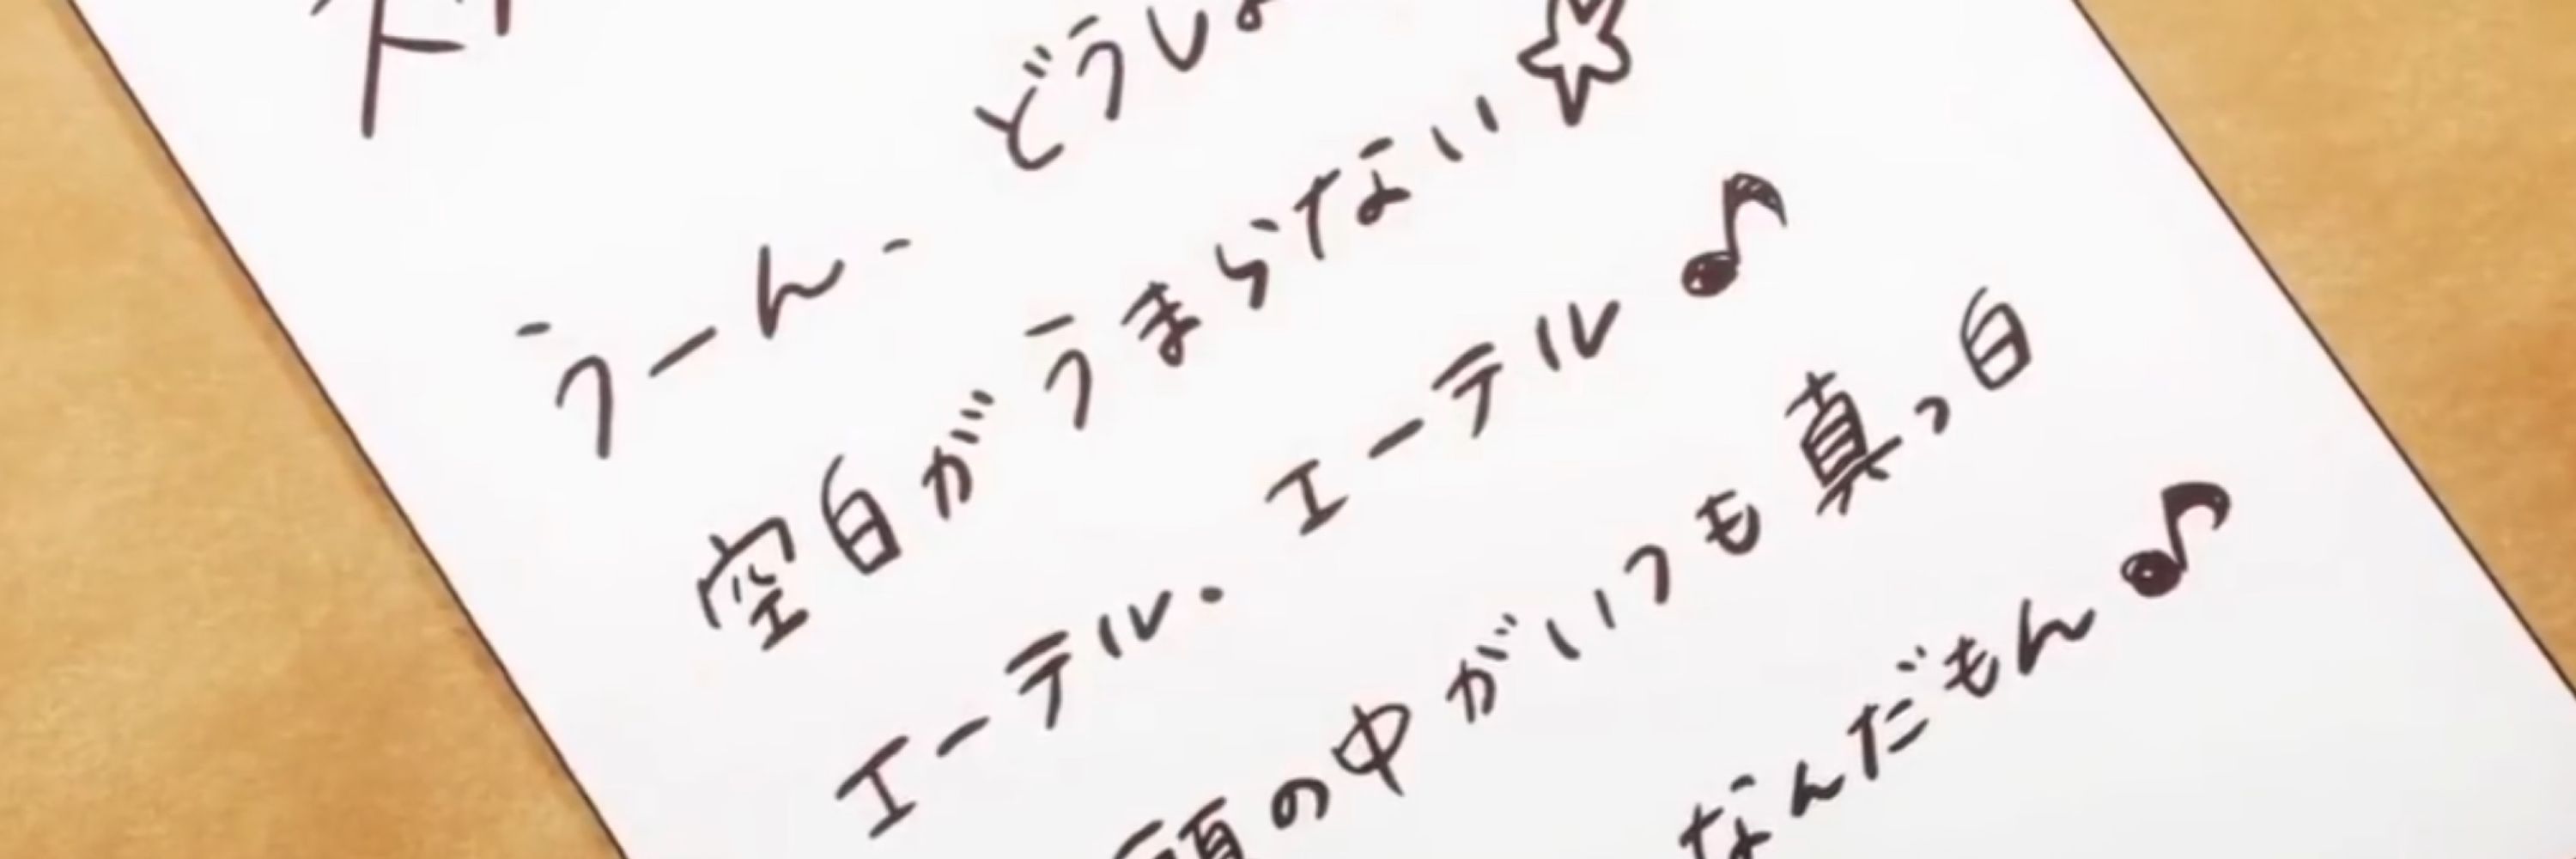 うーん- どうしよ
空白がうまらない☆
エーテル・エーテル♪
頭の中がいつも真っ白
なんだもん♪